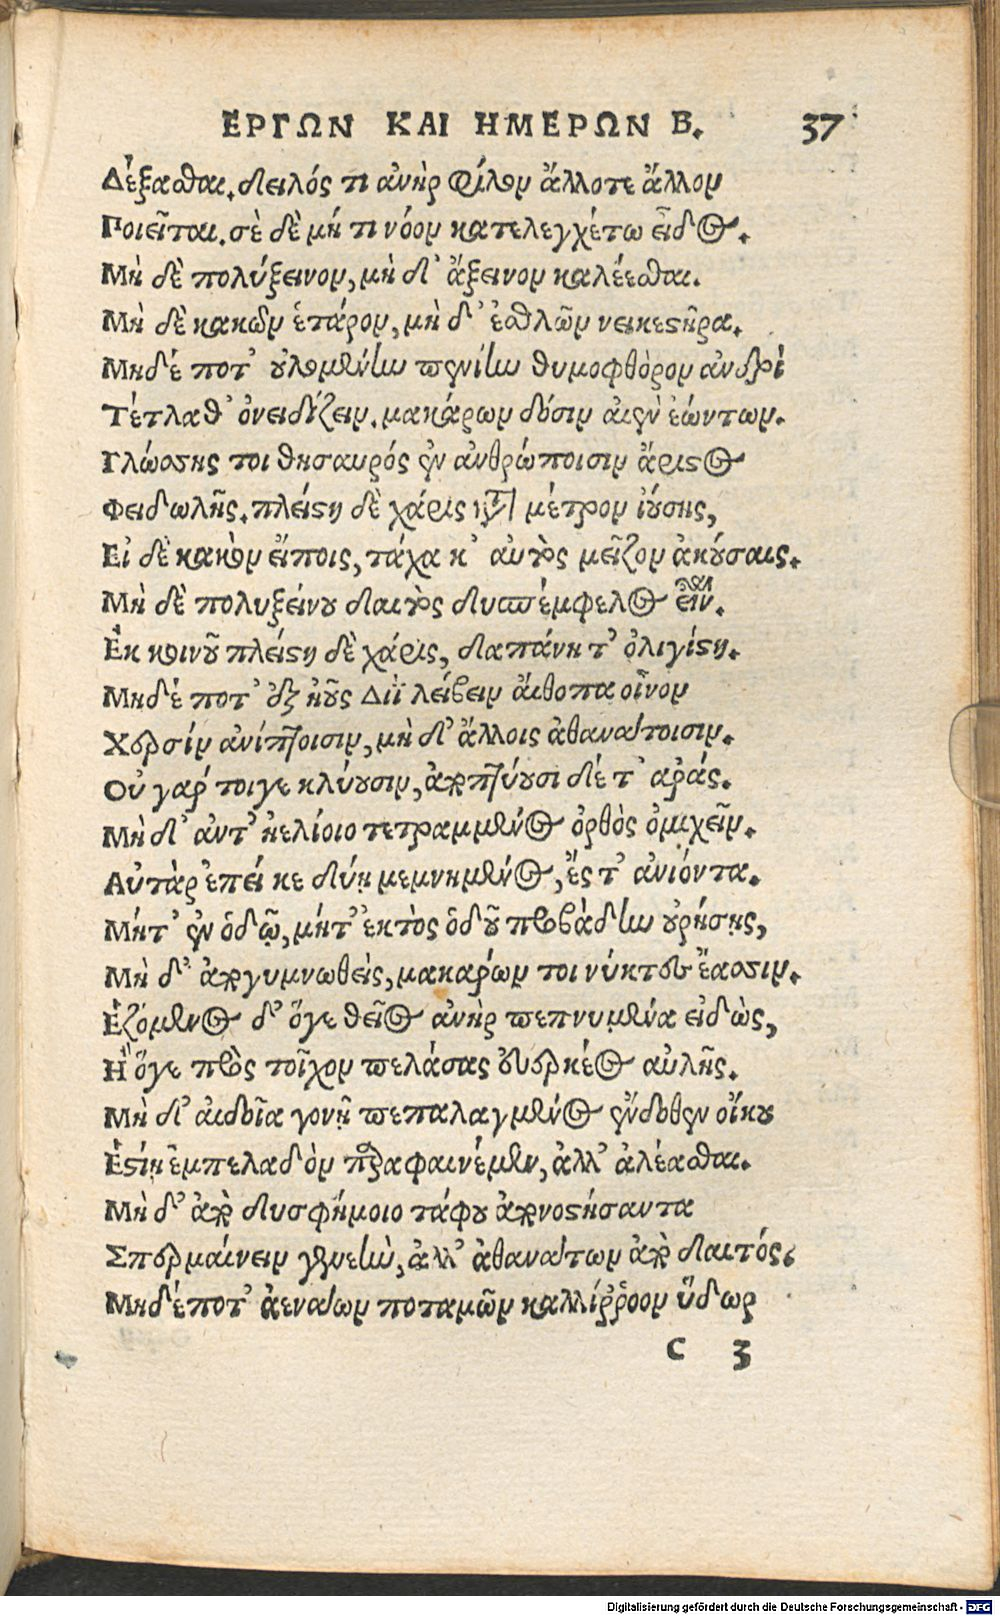 ΕΡΓΩΝ ΚΑΙ ΗΜΕΡΩΝ Β. 37
Δέξασθαι. δειλός τι ἀνὴρ φίλον ἄλλοτε ἄλλον
Ποιεῖται. σὲ δὲ μή τι νόον κατελεγχέτω εἶδος.
Μὴ δὲ πολύξεινον, μὴ δ' ἄξεινον καλέεσθαι.
Μὴ δὲ κακῶν ἑτάρον, μὴ δ' ἐσθλῶν νεικεστῆρα.
Μηδέ ποτ' οὐλομένην πενίην θυμοφθόρον ἀνδρὶ
Τέτλαθ' ὀνειδίζειν. μακάρων δόσιν αἰὲν ἐώντων.
Γλώσσης τοι θησαυρός ἐν ἀνθρώποισιν ἄριστος
Φειδωλῆς. πλείστη δὲ χάρις κατὰ μέτρον ἰούσης,
Εἰ δὲ κακὸν εἴποις, τάχα κ' αὐτὸς μεῖζον ἀκούσαις.
Μὴ δὲ πολυξείνου δαιτὸς δυσπέμφελος εἶναι.
Ἐκ κοινοῦ πλείστη δὲ χάρις, δαπάνη τ' ὀλιγίστη.
Μηδέ ποτ' ἐξ ἠοῦς Διῒ λείβειν αἴθοπα οἶνον
Χερσίν ἀνίπτοισιν, μὴ δ' ἄλλοις ἀθανάτοισιν.
Οὐ γαρ τοιγε κλύουσιν, ἀποπτύουσι δέ τ' αράς.
Μὴ δ' ἀντ' ἠελίοιο τετραμμένος ὀρθὸς ὀμιχεῖν.
Αὐτὰρ ἐπεί κε δύῃ μεμνημένος, ἔς τ' ἀνιόντα.
Μήτ' ἐν ὁδῷ, μήτ' ἐκτὸς ὁδοῦ προβάδην οὐρήσῃς,
Μὴ δ' ἀπογυμνωθεὶς, μακαρων τοι νύκτες ἔασσιν.
Ἑζόμενος δ' ὅγε θεῖος ἀνὴρ πεπνυμένα εἰδὼς,
Ἢ ὅγε πρὸς τοῖχον πελάσας εὐερκέος αὐλῆς.
Μὴ δ' αἰδοῖα γονῇ πεπαλαγμένος ἔνδοθεν οἴκου
Ἑστίῃ ἐμπελαδὸν παραφαινέμεν, ἀλλ' ἀλέασθαι.
Μὴ δ' ἀπὸ δυσφήμοιο τάφου ἀπονοστήσαντα
Σπερμαίνειν γενεὴν, ἀλλ' ἀθανάτων ἀπὸ δαιτός.
Μηδέποτ' ἀενάων ποταμῶν καλλίῤῥοον ὕδωρ
C 3
Digitalisierung gefördert durch die Deutsche Forschungsgemeinschaft - DFG